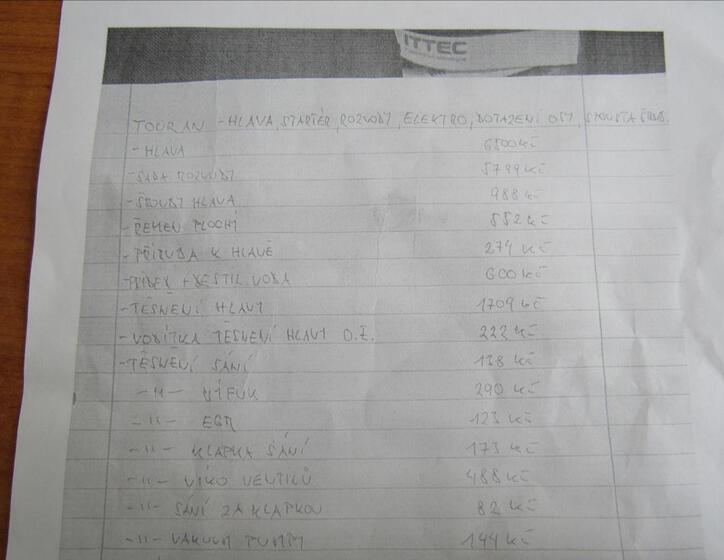 ITTEC
TOURAN - HLAVA, STARTÉR, ROZVODY, ELEKTRO, DOTAŽENÍ OSY, SPOUSTA ŠROUB.
- HLAVA 6500 Kč
- SADA ROZVODY 5799 Kč
- ŠROUBY HLAVA 988 Kč
- ŘEMEN PLOCHÍ 552 Kč
- PŘÍRUBA K HLAVĚ 274 Kč
- FRIDEX + DESTIL VODA 600 Kč
- TĚSNENÍ HLAVY 1709 Kč
- VODÍTKA TĚSNENÍ HLAVY O.E. 222 Kč
- TĚSNENÍ SÁNÍ 138 Kč
-"- VÍFUK 290 Kč
-"- EGR 123 Kč
-"- KLAPKA SÁNÍ 173 Kč
-"- VÍKO VENTILŮ 488 Kč
-"- SÁNÍ ZA KLAPKOU 82 Kč
-"- VAKUUM PUMPY 144 Kč